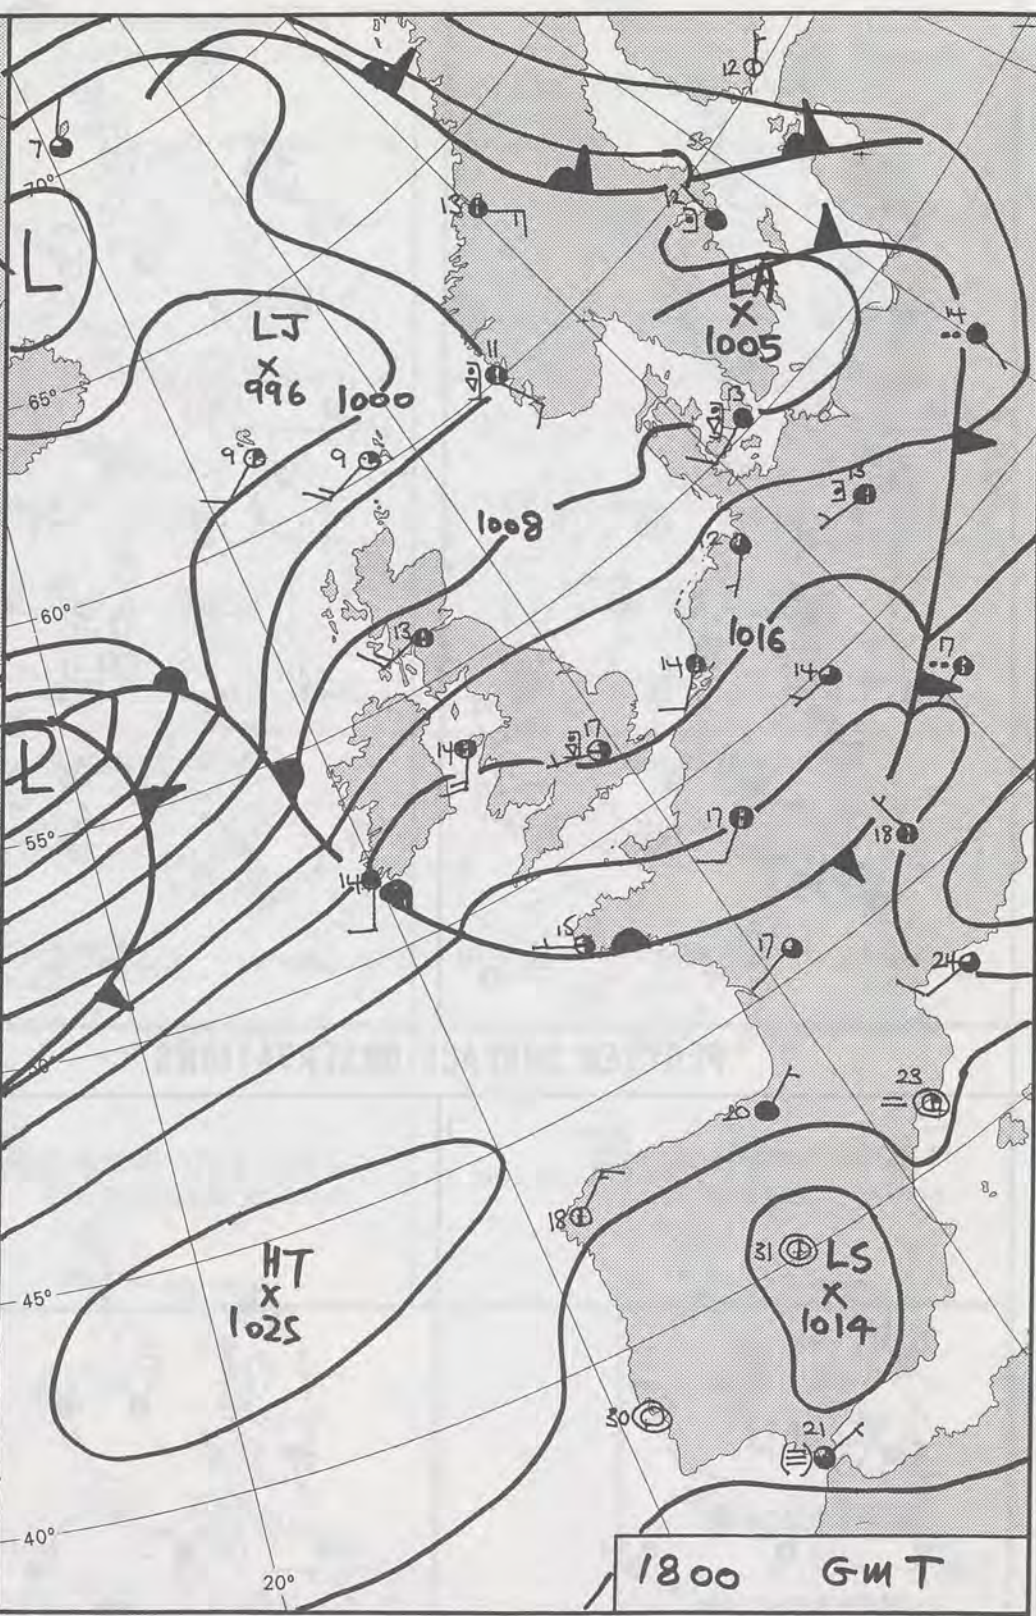 12
7
70°
12
13
L
LA
×
1005
14
LJ
×
996
1000
11
13
65°
9
9
13
1008
2
60°
13
1016
14
14
17
L
14
17
55°
17
18
14
15
17
24
50°
23
20
18
31
LS
×
1014
HT
×
1025
45°
30
21
40°
20°
1800 GMT